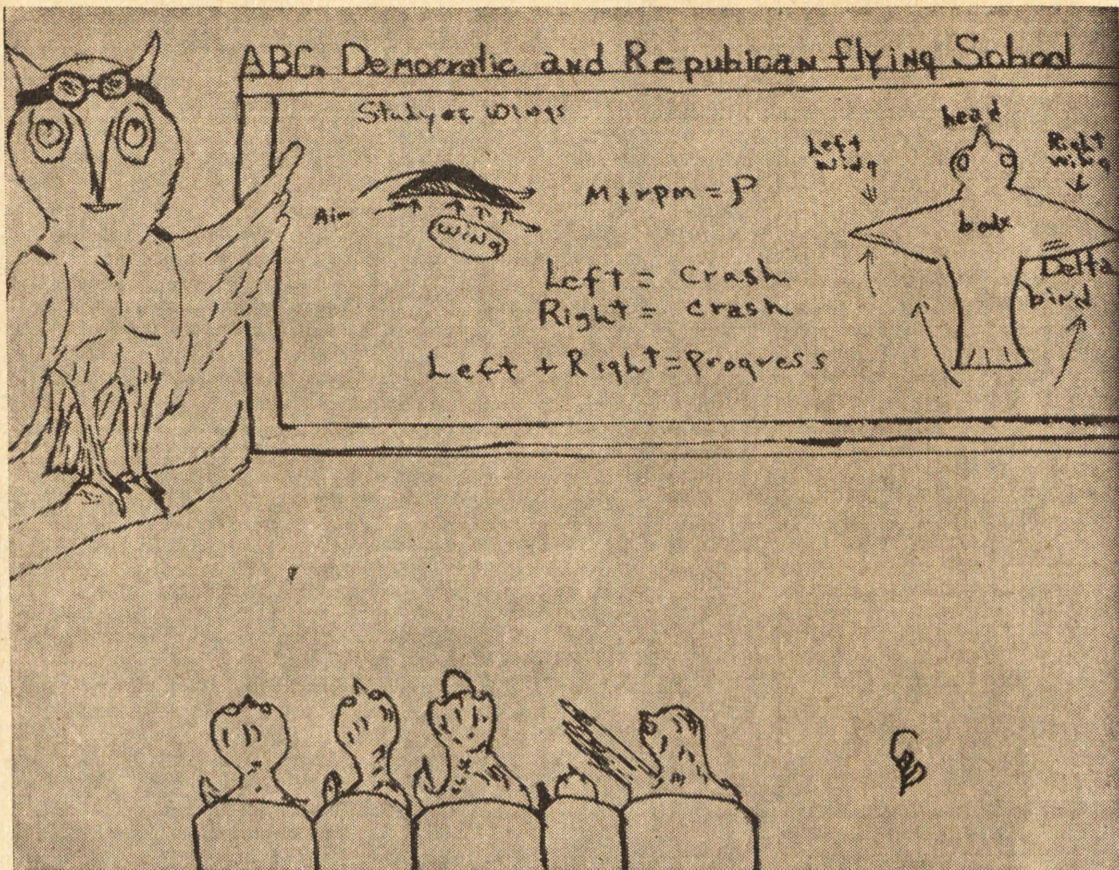 ABC. Democratic and Republican flying School
Study of Wings
Air
Wing
M + rpm = P
Left = crash
Right = crash
Left + Right = Progress
head
Left
Wing
Right
Wing
body
Delta
bird